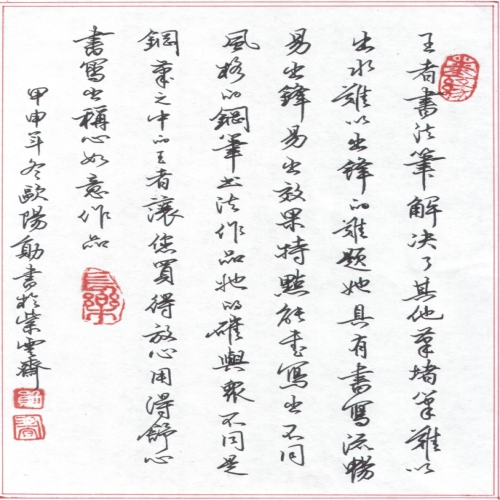 王者书法笔解决了其他笔堵笔难以
出水难以出锋的难题她具有書寫流暢
易出鋒易出效果特點能書寫出不同
風格的鋼筆书法作品她的確與眾不同是
鋼筆之中的王者讓您買得放心用得舒心
書寫出稱心如意作品
甲申年冬歐陽勛書於紫雲齋